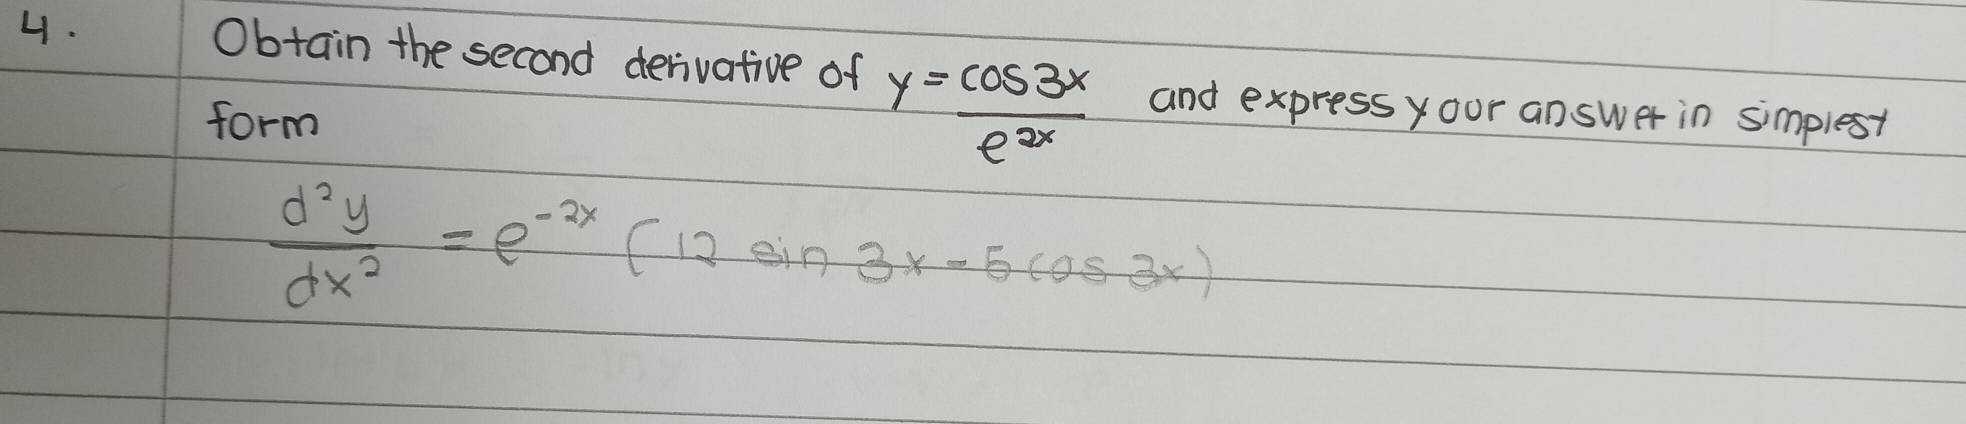 4. Obtain the second derivative of y = cos3x / e^2x and express your answer in simplest
form
d²y/dx² = e^-2x (12 sin 3x - 5 cos 3x)